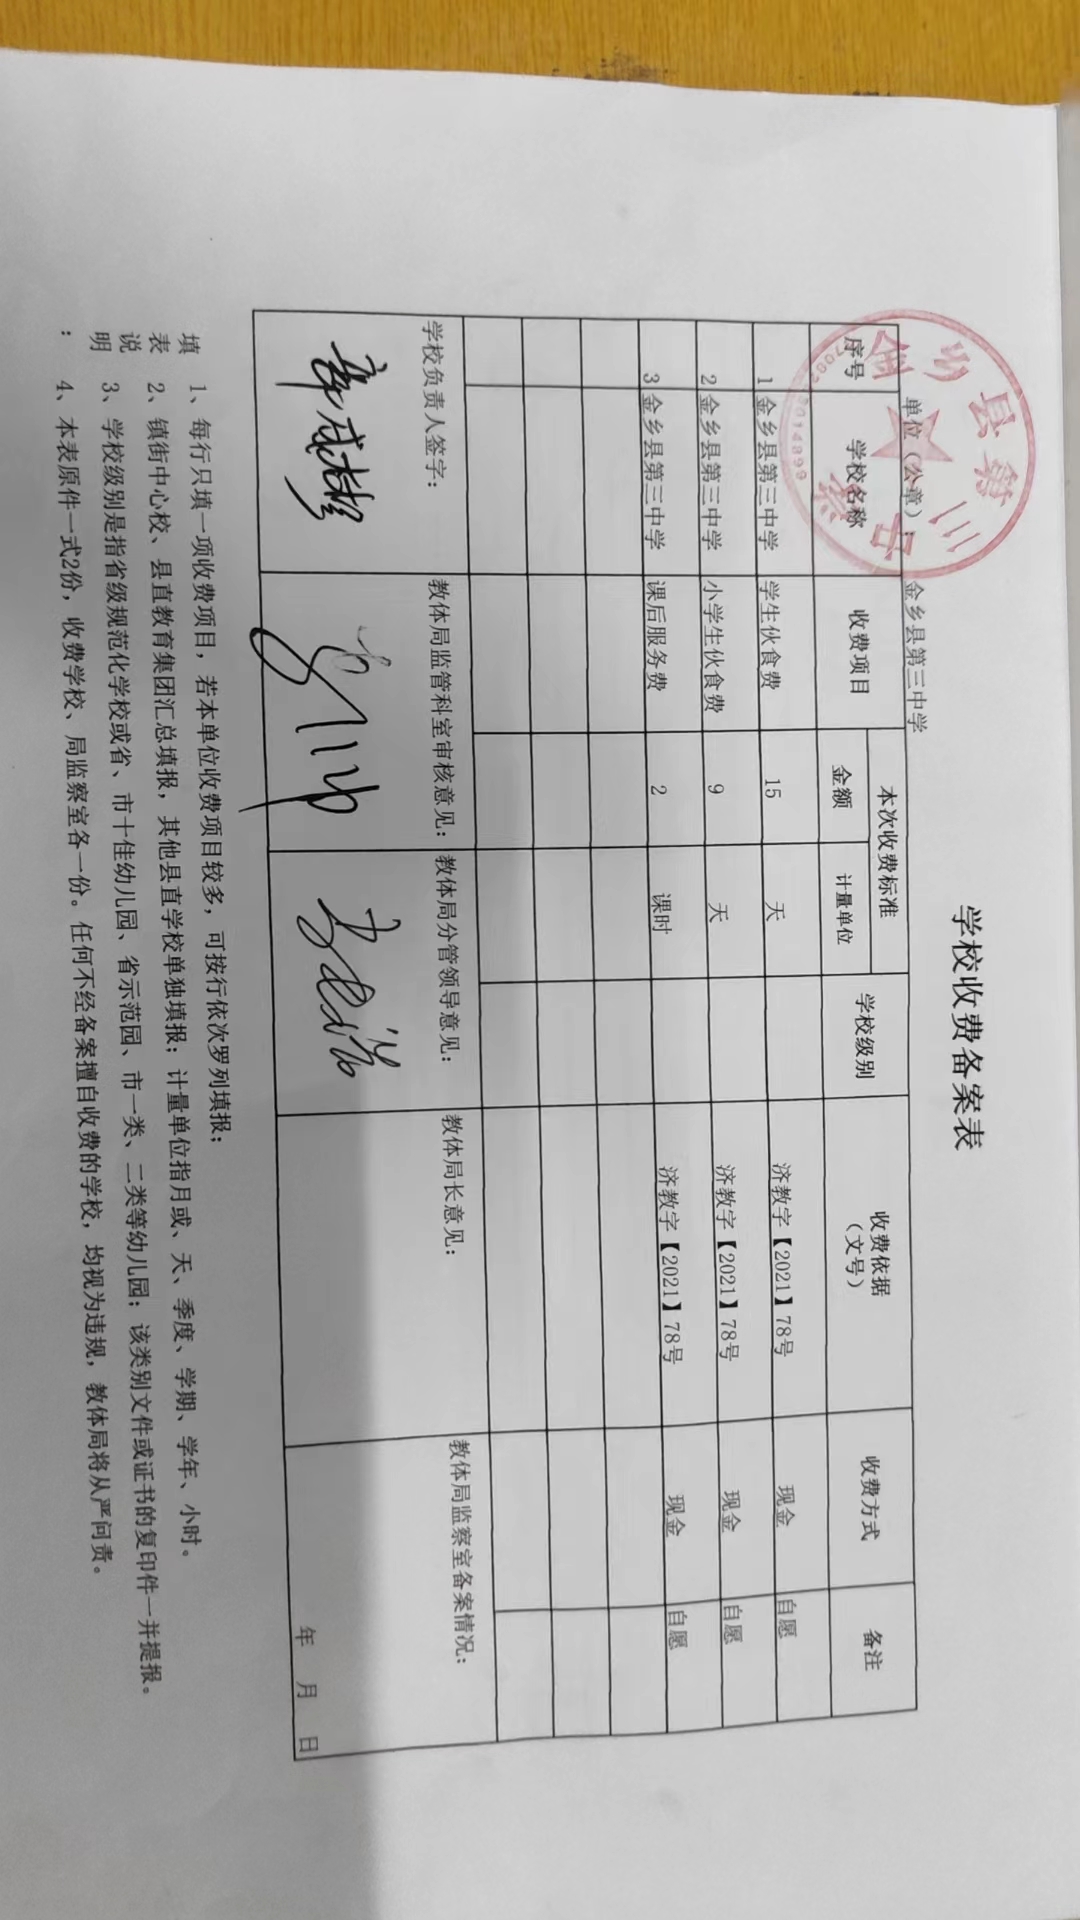 学校收费备案表
单位（公章）：金乡县第三中学
序号 学校名称 收费项目 本次收费标准 学校级别 收费依据（文号） 收费方式 备注
金额 计量单位
1 金乡县第三中学 学生伙食费 15 天 济教字【2021】78号 现金 自愿
2 金乡县第三中学 小学生伙食费 9 天 济教字【2021】78号 现金 自愿
3 金乡县第三中学 课后服务费 2 课时 济教字【2021】78号 现金 自愿
学校负责人签字： 教体局监管科室审核意见： 教体局分管领导意见： 教体局长意见： 教体局监察室备案情况：
年 月 日
填表说明：
1、每行只填一项收费项目，若本单位收费项目较多，可按行依次罗列填报；
2、镇街中心校、县直教育集团汇总填报，其他县直学校单独填报；计量单位指月或、天、季度、学期、学年、小时。
3、学校级别是指省级规范化学校或省、市十佳幼儿园、省示范园、市一类、二类等幼儿园；该类别文件或证书的复印件一并提报。
4、本表原件一式2份，收费学校、局监察室各一份。任何不经备案擅自收费的学校，均视为违规，教体局将从严问责。